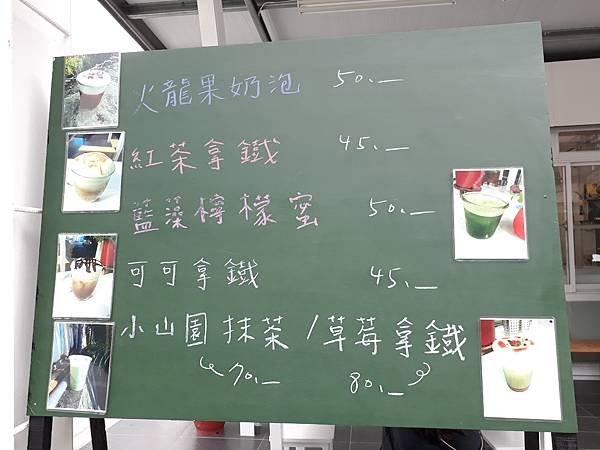 火龍果奶泡 50.—
紅茶拿鐵 45.—
藍藻檸檬蜜 50.—
可可拿鐵 45.—
小山園抹茶/草莓拿鐵
70.— 80.—